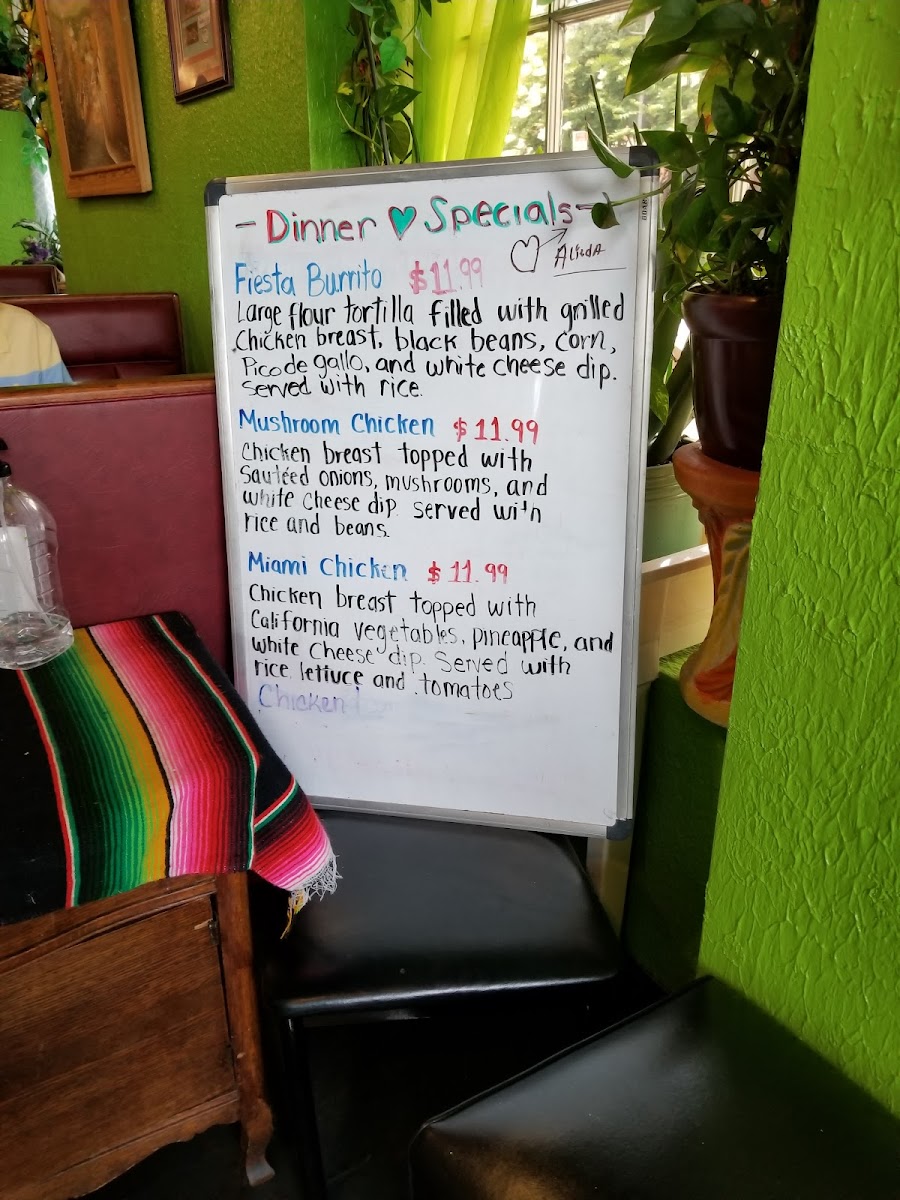 - Dinner ♥ Specials -
Fiesta Burrito $11.99
Large flour tortilla filled with grilled
Chicken breast, black beans, corn,
Pico de gallo, and white cheese dip.
served with rice.
Mushroom Chicken $11.99
Chicken breast topped with
Sautéed onions, mushrooms, and
white cheese dip. served with
rice and beans.
Miami Chicken $11.99
Chicken breast topped with
California vegetables, pineapple, and
white Cheese dip. Served with
rice, lettuce and tomatoes
Chicken